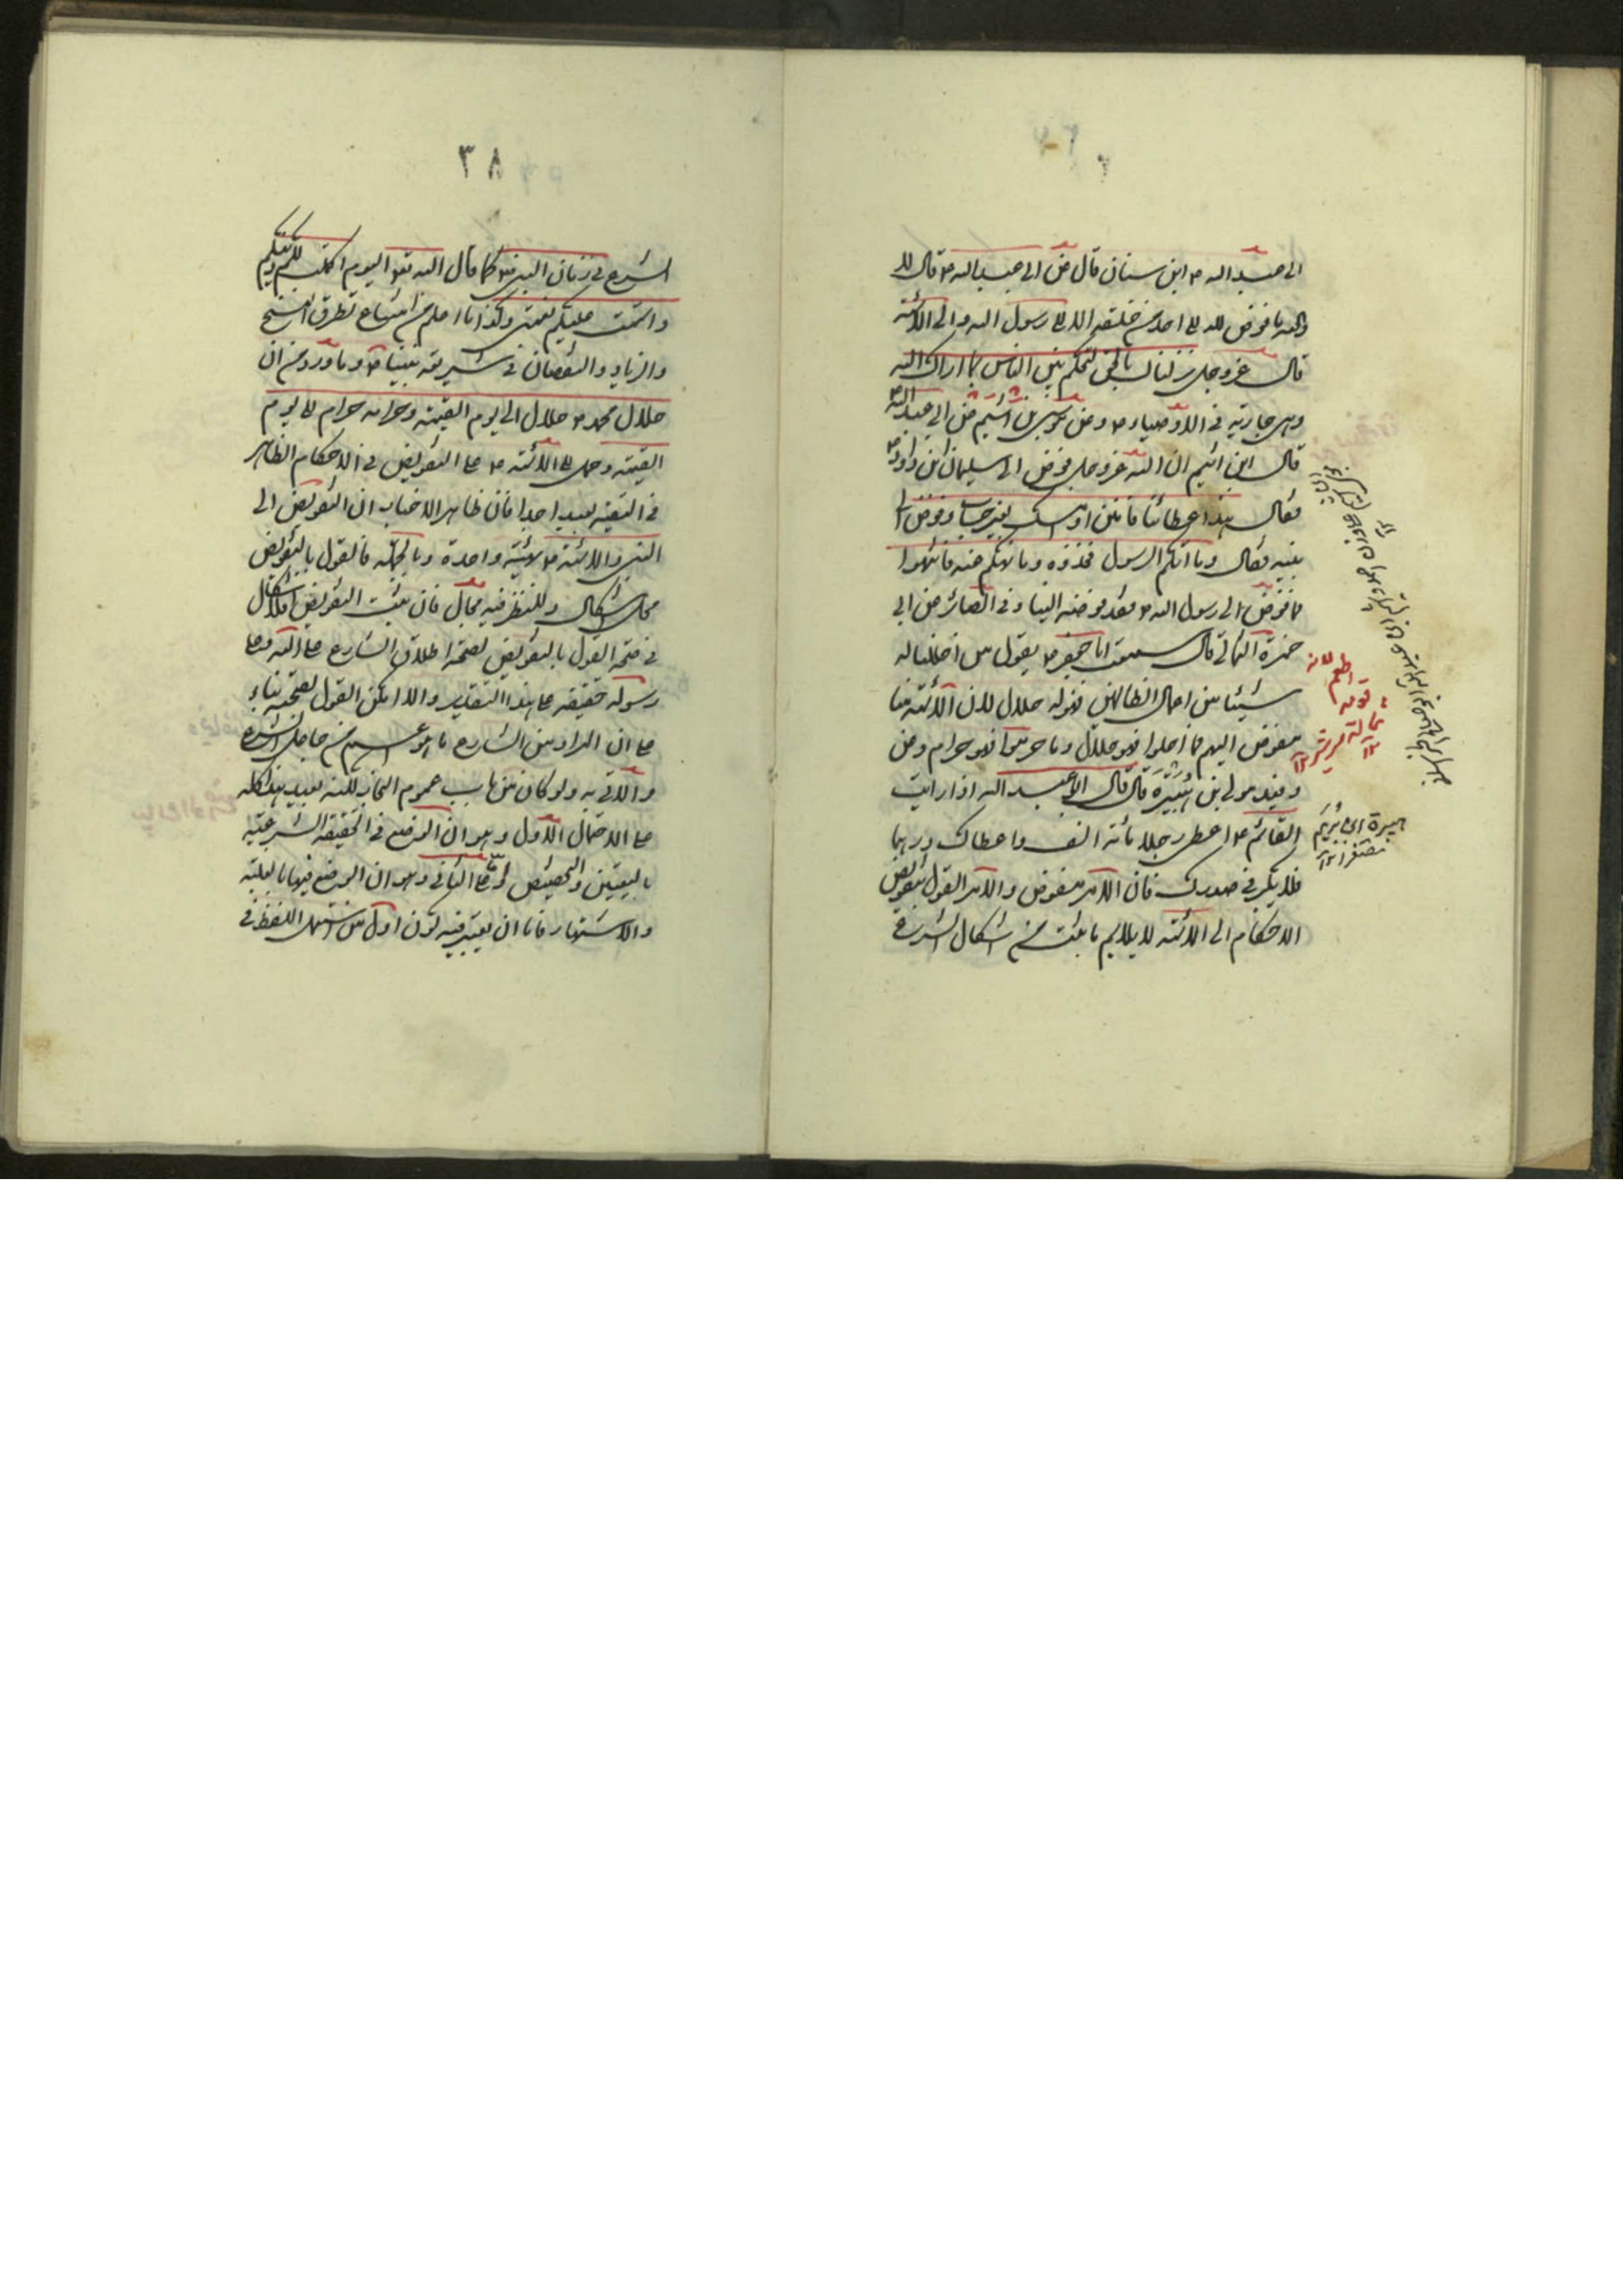 الى عبد الله ع ابن سنان قال عن ابى عبد الله ع قال لا
والله ما فوض الله الى احد من خلقه الا الى رسول الله و الى الائمة
قال عز وجل انزلنا بالحق لتحكم بين الناس بما اراك الله
وهى جارية فى الاوصياء ع وعن موسى بن اشيم عن ابى عبد الله ع
قال ابن اشيم ان الله عز وجل فوض الى سليمان ابن داود ع
فقال هذا عطائنا فامنن او امسك بغير حساب وفوض الى
نبيه فقال وما آتيكم الرسول فخذوه وما نهيكم عنه فانتهوا
فما فوض الى رسول الله ص فقد فوضه الينا وفى البصائر عن ابى
حمزة الثمالى قال سمعت ابا جعفر ع يقول من احللنا له
شيئا من اعمال الظالمين فهو له حلال لان الائمة منا
مفوض اليهم فما احلوا فهو حلال وما حرموا فهو حرام وعن
رفيد مولى بن هبيرة قال قال ابو عبد الله اذا رايت
القائم ع اعطى رجلا مائة الف واعطاك درهما
فلا يكبر فى صدرك فان الامر مفوض والامر القول بتفويض
الاحكام الى الائمة لا يلايم ما ثبت من اكمال الشرع
هبيرة ابن يريم
مصغرا
٣٨
الشرع فى زمان النبى ص كما قال الله تعالى اليوم اكملت لكم دينكم
واتممت عليكم نعمتى وكذا ما علم من امتناع تطرق النسخ
والزيادة والنقصان فى شريعة نبينا ص وما ورد من ان
حلال محمد ص حلال الى يوم القيمة وحرامه حرام الى يوم
القيمة وحمل الائمة ع على التفويض فى الاحكام الظاهر
فى التقية بعيد جدا فان ظاهر الاخبار ان التفويض الى
النبى والائمة ع بمثابة واحدة وبالجملة فالقول بالتفويض
محل اشكال وللنظر فيه مجال فان ثبت التفويض فلا اشكال
فى صحة القول بالتفويض لصحة اطلاق الشارع على الله وعلى
رسوله حقيقة على هذا التقدير والا امكن القول بصحته بناء
على ان المراد من الشارع ما هو اعم من جاعل الشرع
والآتى به ولو كان من باب عموم المجاز لكنه بعيد هذا كله
على الاحتمال الاول وهو ان الوضع فى الحقيقة الشرعية
بالتعيين والتخصيص واما على الثانى وهو ان الوضع فيها بالغلبة
والاشتهار فاما ان يعتبر فيه كون اول من استعمل اللفظ فى